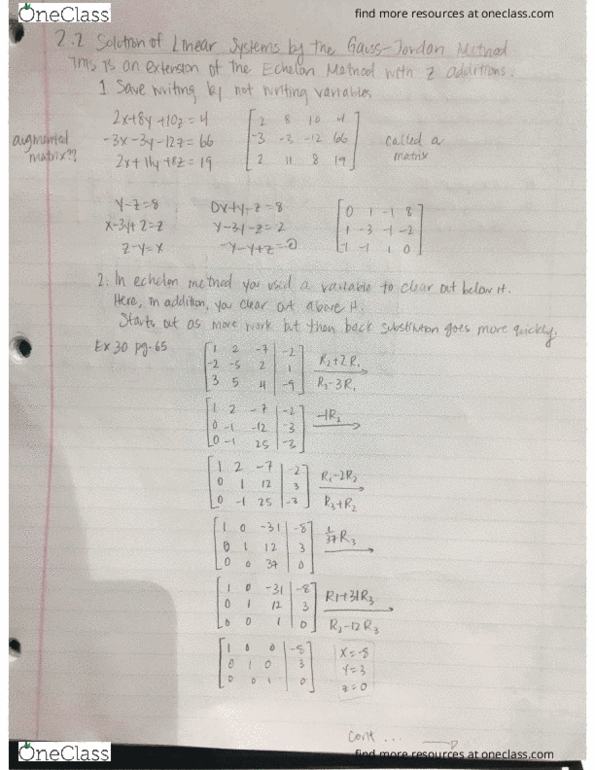 OneClass
find more resources at oneclass.com
2.2 Solution of Linear Systems by the Gauss-Jordan Method
This is an extension of the Echelon Method with 2 additions.
1 Save writing by not writing variables
2x+8y+10z=4 [2 8 10 4]
augmented matrix?? -3x-3y-12z=66 [-3 -3 -12 66] called a matrix
2x+11y+8z=19 [2 11 8 19]
y-z=8 0x+y-z=8 [0 1 -1 8]
x-3y+2=z [1 -3 -1 -2]
z-y=x [-1 -1 1 0]
2. In echelon method you used a variable to clear out below it.
Here, in addition, you clear out above it.
Starts out as more work but then back substitution goes more quickly.
Ex 30 pg. 65
[1 2 -7 | -2] R2+2R1
[-2 -5 2 | 1]
[3 5 4 | -9] R3-3R1
[1 2 -7 | -2] -1R2
[0 -1 -12 | -3]
[0 -1 25 | -3]
[1 2 -7 | -2] R1-2R2
[0 1 12 | 3]
[0 -1 25 | -3] R3+R2
[1 0 -31 | -8] 1/37 R3
[0 1 12 | 3]
[0 0 37 | 0]
[1 0 -31 | -8] R1+31R3
[0 1 12 | 3]
[0 0 1 | 0] R2-12R3
[1 0 0 | -8] x=-8
[0 1 0 | 3] y=3
[0 0 1 | 0] z=0
Cont ...
OneClass
find more resources at oneclass.com